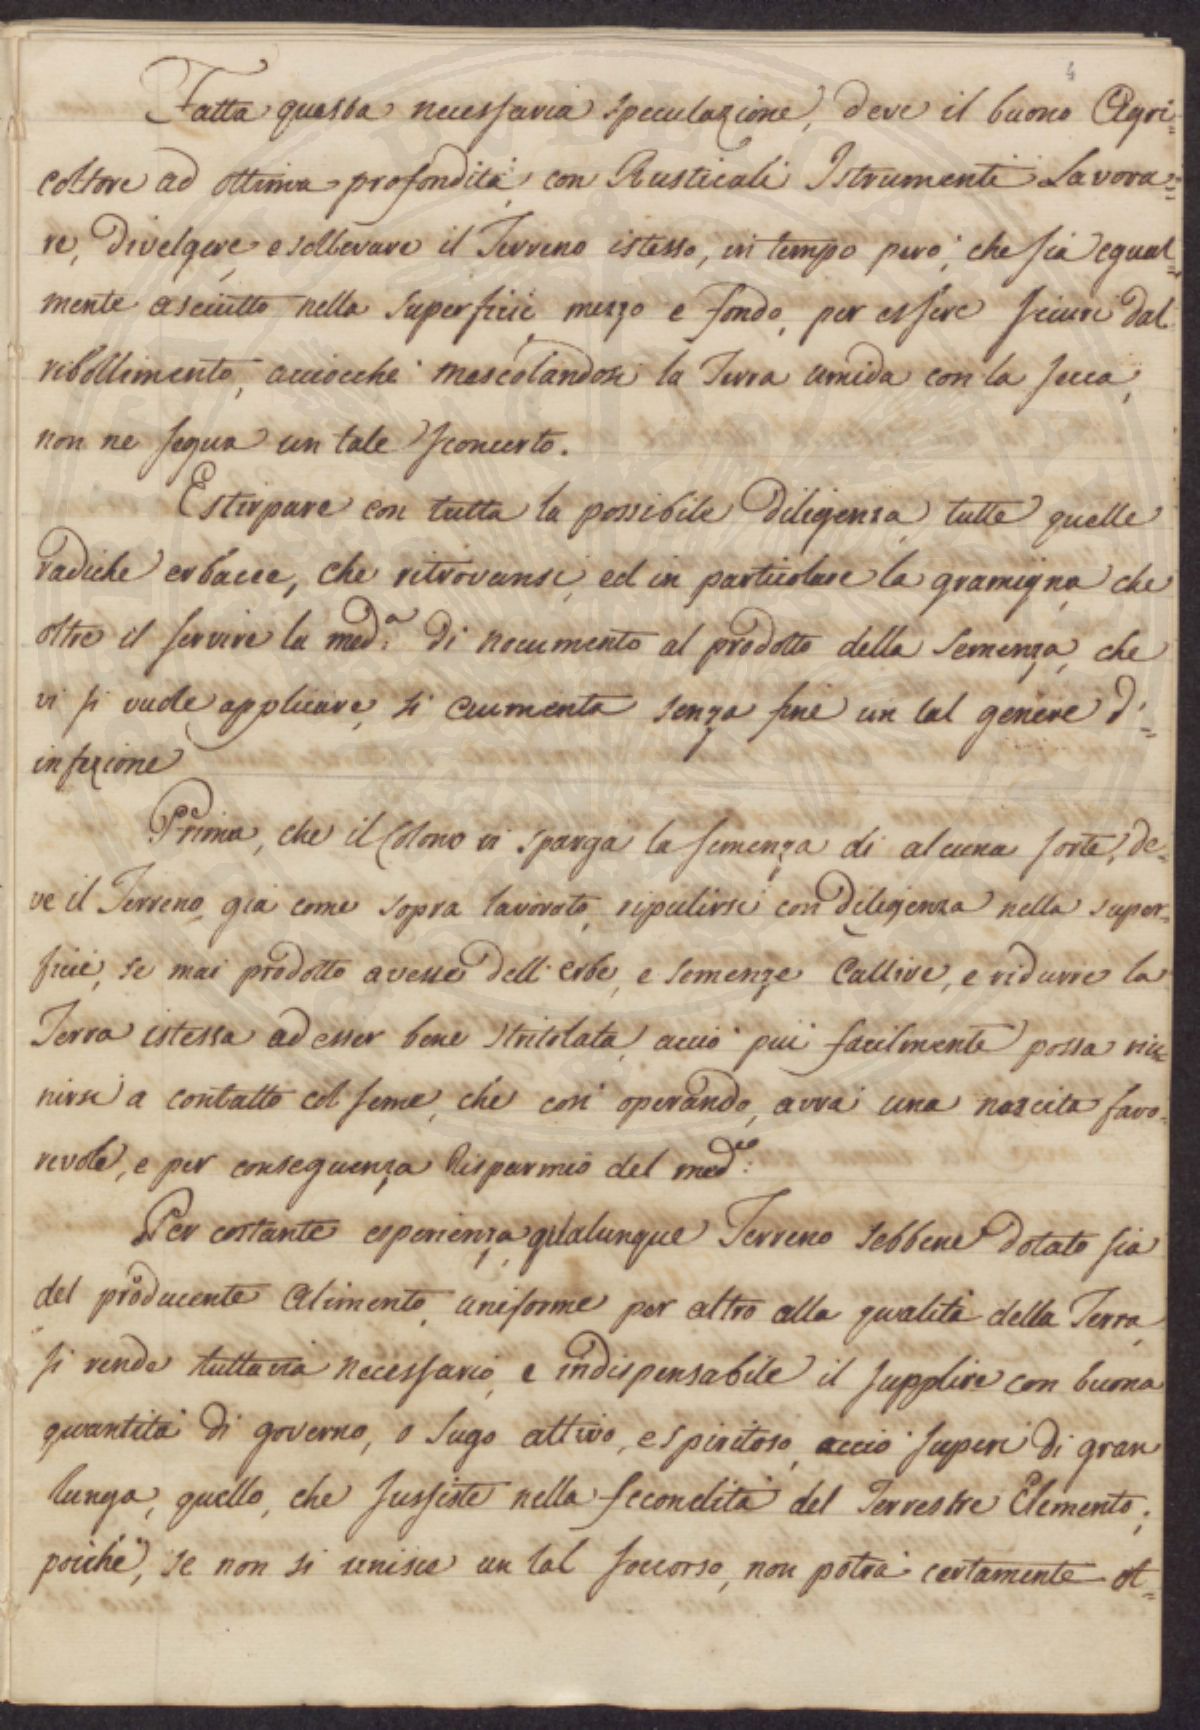 4
Fatta questa necessaria speculazione, deve il buono Agri=
coltore ad ottima profondità, con Rusticali Istrumenti Lavora=
re, Divelgere, e sollevare il Terreno istesso, in tempo però, che sia egual=
mente asciutto nella superficie mezzo e fondo, per essere sicuri dal
ribollimento, acciocchè mescolandosi la Terra umida con la secca,
non ne segua un tale sconcerto.
Estirpare con tutta la possibile Diligenza, tutte quelle
radiche erbacce, che ritrovansi, ed in particolare la gramigna, che
oltre il servire la med.a di nocumento al prodotto della semenza, che
vi si vuole applicare, si aumenta senza fine un tal genere d'=
infezione
Prima, che il Colono vi sparga la semenza di alcuna sorte, de=
ve il Terreno, già come sopra lavorato, ripulirsi con Diligenza nella super=
ficie, se mai prodotto avesse dell'erbe, e semenze Cattive, e ridurre la
Terra istessa ad esser bene stritolata, acciò più facilmente possa riu=
nirsi a contatto col seme, che così operando, avrà una nascita favo=
revole, e per conseguenza Risparmio del med.co
Per costante esperienza, qualunque Terreno sebbene Dotato sia
del producente Alimento, uniforme per altro alla qualità della Terra,
si rende tuttavia necessario, e indispensabile il supplire con buona
quantità di governo, o sugo attivo, e spiritoso, acciò superi di gran
lunga, quello, che sussiste nella fecondità del Terrestre Elemento;
poichè, se non si unisce un tal soccorso, non potrà certamente ot=